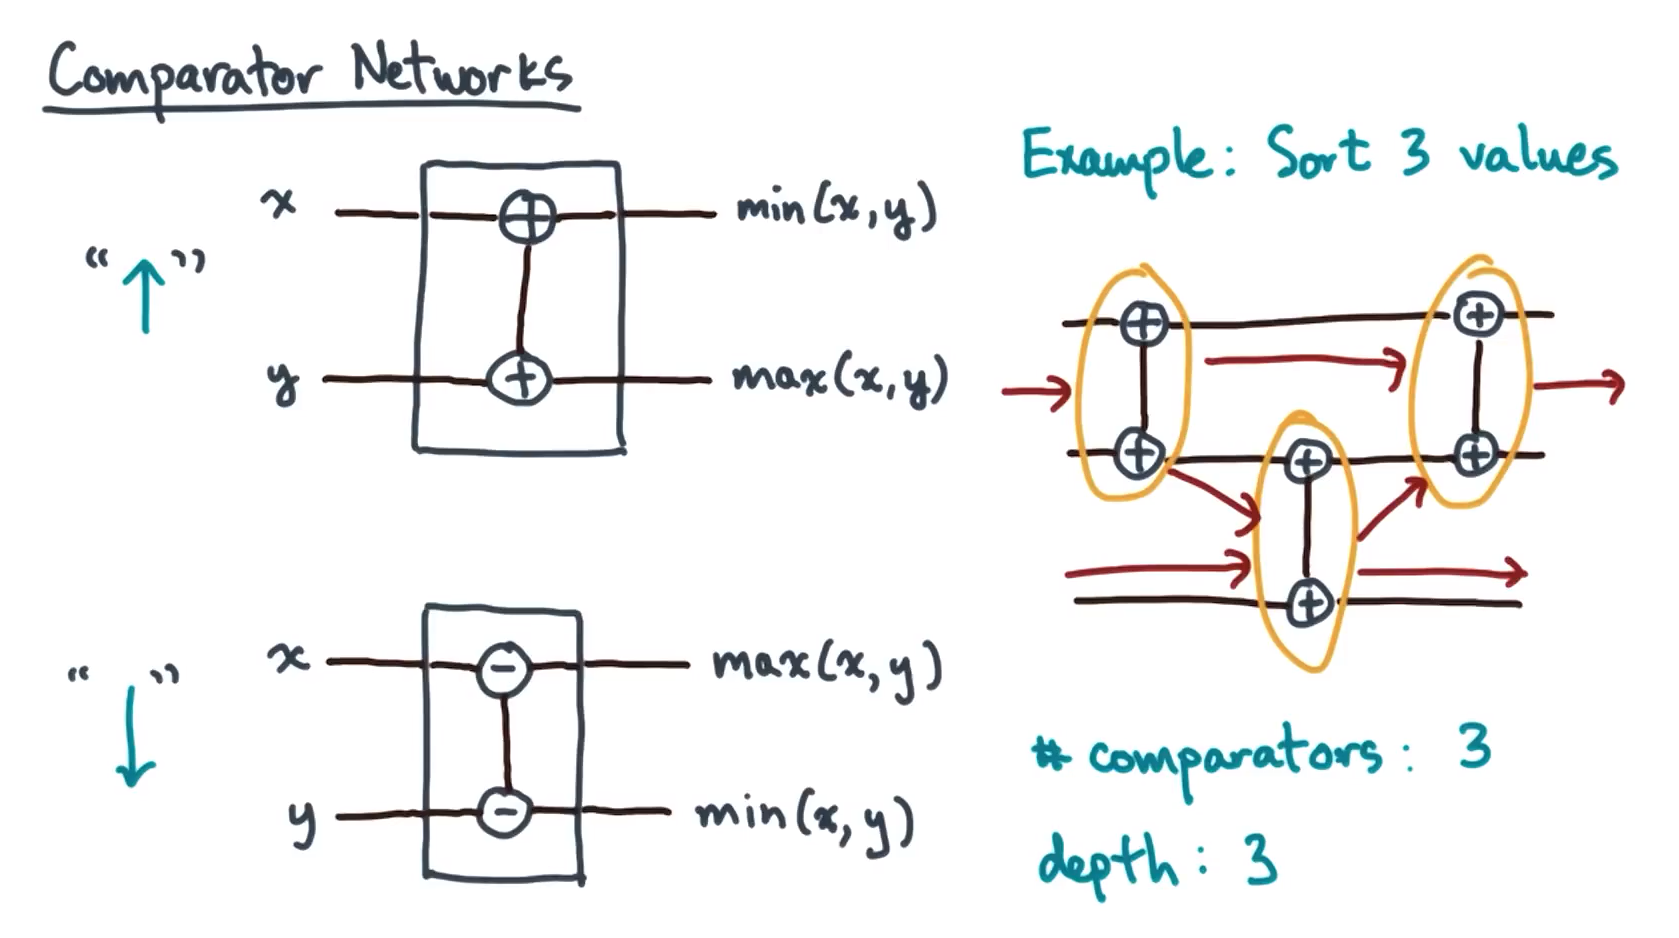 Comparator Networks
x ⊕ min(x,y)
“↑”
y ⊕ max(x,y)
x ⊖ max(x,y)
“↓”
y ⊖ min(x,y)
Example: Sort 3 values
⊕ ⊕
⊕ ⊕ ⊕
⊕
# comparators: 3
depth: 3